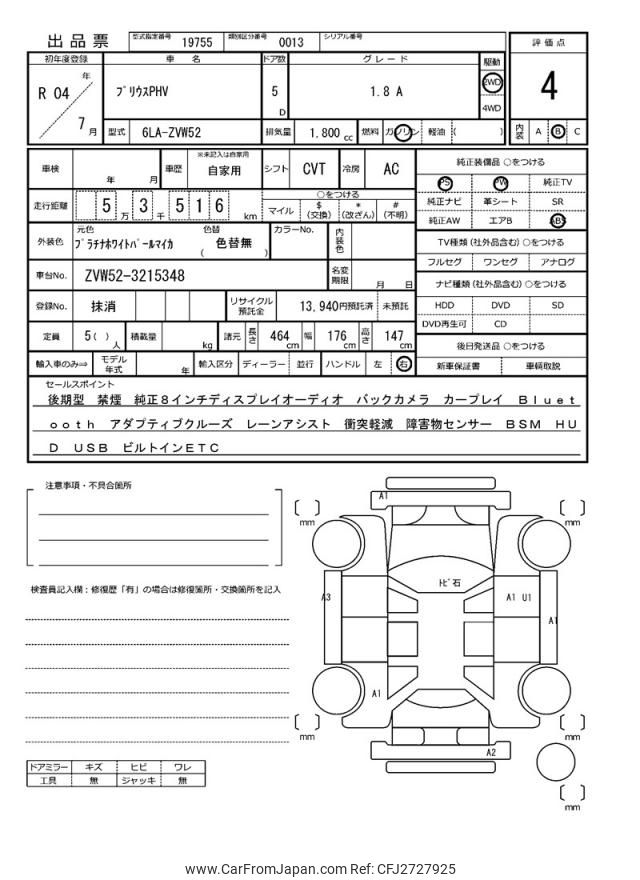 出品票
型式指定番号 19755 類別区分番号 0013 シリアル番号
評価点
4
内装 A B C
初年度登録 車名 ドア数 グレード 駆動
R 04 年 7 月
プリウスPHV 5 D 1.8 A 2WD 4WD
型式 6LA-ZVW52 排気量 1.800 cc 燃料 ガソリン 軽油 ( )
車検 年 月 車歴 ※未記入は自家用 自家用 シフト CVT 冷房 AC
走行距離 5 万 3 千 5 1 6 km
○をつける
マイル $ (交換) * (改ざん) # (不明)
外装色 元色 プラチナホワイトパールマイカ 色替 ( 色替無 ) カラーNo. 内装色
車台No. ZVW52-3215348 名変期限 月 日
登録No. 抹消 リサイクル預託金 13,940円預託済 未預託
定員 5( ) 人 積載量 kg 諸元 長さ 464 cm 幅 176 cm 高さ 147 cm
輸入車のみ⇒ モデル年式 年 輸入区分 ディーラー 並行 ハンドル 左 右
純正装備品 ○をつける
PS PW 純正TV
純正ナビ 革シート SR
純正AW エアB ABS
TV種類 (社外品含む) ○をつける
フルセグ ワンセグ アナログ
ナビ種類 (社外品含む) ○をつける
HDD DVD SD
DVD再生可 CD
後日発送品 ○をつける
新車保証書 車輌取説
セールスポイント
後期型 禁煙 純正8インチディスプレイオーディオ バックカメラ カープレイ Bluet
ooth アダプティブクルーズ レーンアシスト 衝突軽減 障害物センサー BSM HU
D USB ビルトインETC
注意事項・不具合箇所
検査員記入欄：修復歴「有」の場合は修復箇所・交換箇所を記入
ドアミラー キズ ヒビ ワレ
工具 無 ジャッキ 無
A1
[ ] mm
[ ] mm
トビ石
A3
A1 U1
A1
A1
[ ] mm
[ ] mm
A2
[ ] mm
www.CarFromJapan.com Ref: CFJ2727925